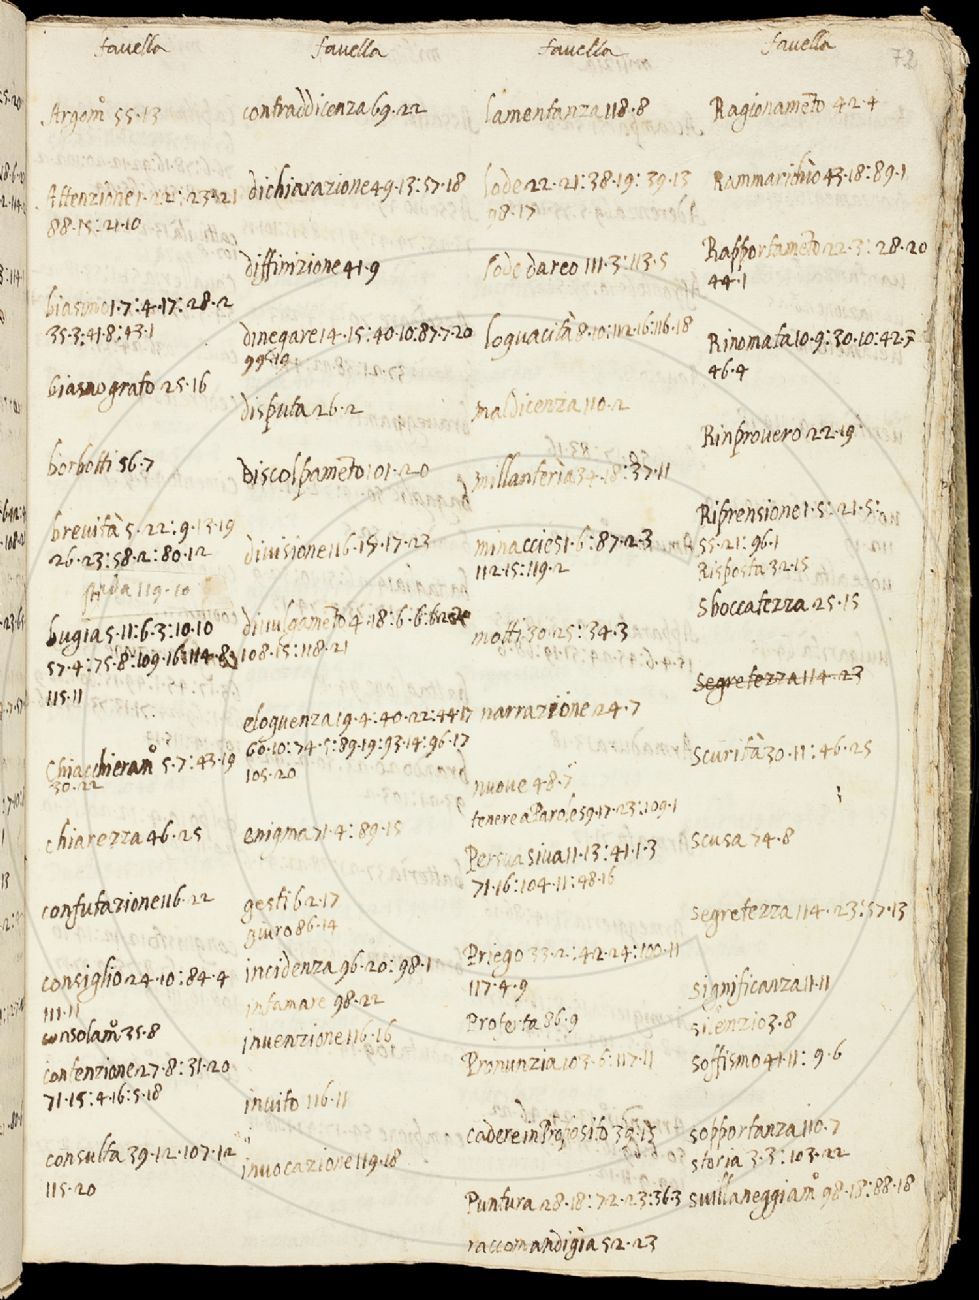 favella
Argom.º 55·13
Attenzione 1·22: 23·21
88·15: 21·10
biasimo 1·7: 4·17: 28·2
35·3: 41·8: 43·1
biasmo grato 25·16
borbotti 56·7
brevità 5·22: 9·13·19
26·23: 58·2: 80·12
119·10
bugia 5·11: 6·3: 10·10
57·4: 75·8: 109·16: 114·8
115·11
Chiacchieram.º 5·7: 43·19
30·22
chiarezza 46·25
confutazione 116·22
consiglio 24·10: 84·4
111·11
consolam.º 35·8
contenzione 27·8: 31·20
71·15: 4·16: 5·18
consulta 39·12·107·12
115·20
favella
contraddicenza 69·22
dichiarazione 49·13: 57·18
diffinizione 41·9
dinegare 14·15: 40·10: 87·7·20
99·19
disputa 26·2
discolpameto 101·20
divisione 116·15·17·23
divulgameto 4·18: 6·6:
108·15: 118·21
eloquenza 19·4: 40·22: 44·17
60·10: 74·5: 89·19: 93·14: 96·17
105·20
enigma 71·4: 89·15
gesti 62·17
giuro 86·14
incidenza 96·20: 98·1
infamare 98·22
invenzione 116·16
invito 116·11
invocazione 119·18
favella
lamentanza 118·8
lode 22·21: 38·19: 39·13
98·17
lode da reo 111·3: 113·5
loquacità 8·10: 112·16: 116·18
maldicenza 110·2
millanteria 34·18: 37·11
minaccie 51·6: 87·2·3
112·15: 119·2
motti 30·25: 34·3
narrazione 24·7
nuove 48·7
tenere a Parole 59·17·23: 109·1
Persuasiva 11·13: 41·1·3
71·16: 104·11: 48·16
Priego 33·2: 42·24: 100·11
117·4·9
Proferta 86·9
Pronunzia 103·6: 117·11
cadere in Proposito 39·13
Puntura 28·18: 72·23: 36·3
raccomandigia 52·23
favella
72
Ragionameto 42·4
Rammarichio 43·18: 89·1
Rapportameto 22·3: 28·20
44·1
Rinomata 10·9: 30·10: 42·7
46·4
Rinprovero 22·19
Riprensione 1·5: 21·5:
55·21: 96·1
Risposta 32·15
Sboccatezza 25·15
Segretezza 114·23
Scurità 30·11: 46·25
Scusa 74·8
segretezza 114·23: 57·13
significanza 11·11
silenzio 3·8
soffismo 41·11: 9·6
sopportanza 110·7
storia 3·3: 103·22
svillaneggiam.º 98·18: 88·18